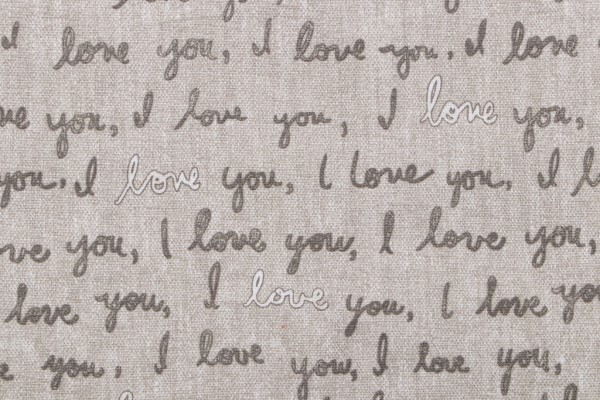 love you,
I love you, I love you, I love
you, I love you, I love you,
you, I love you, I love you, I
love you, I love you, I love you,
love you, I love you, I love you
you, I love you, I love you,